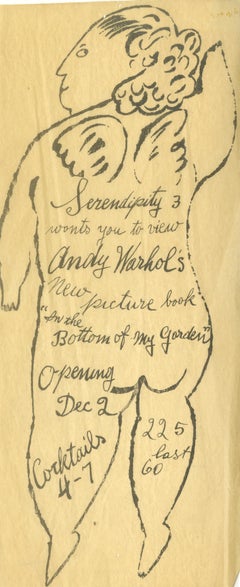 Serendipity 3
wants you to view
Andy Warhol's
New
picture book
"In the
Bottom of My Garden"
Opening
Dec 2
Cocktails
4-7
225
East
60